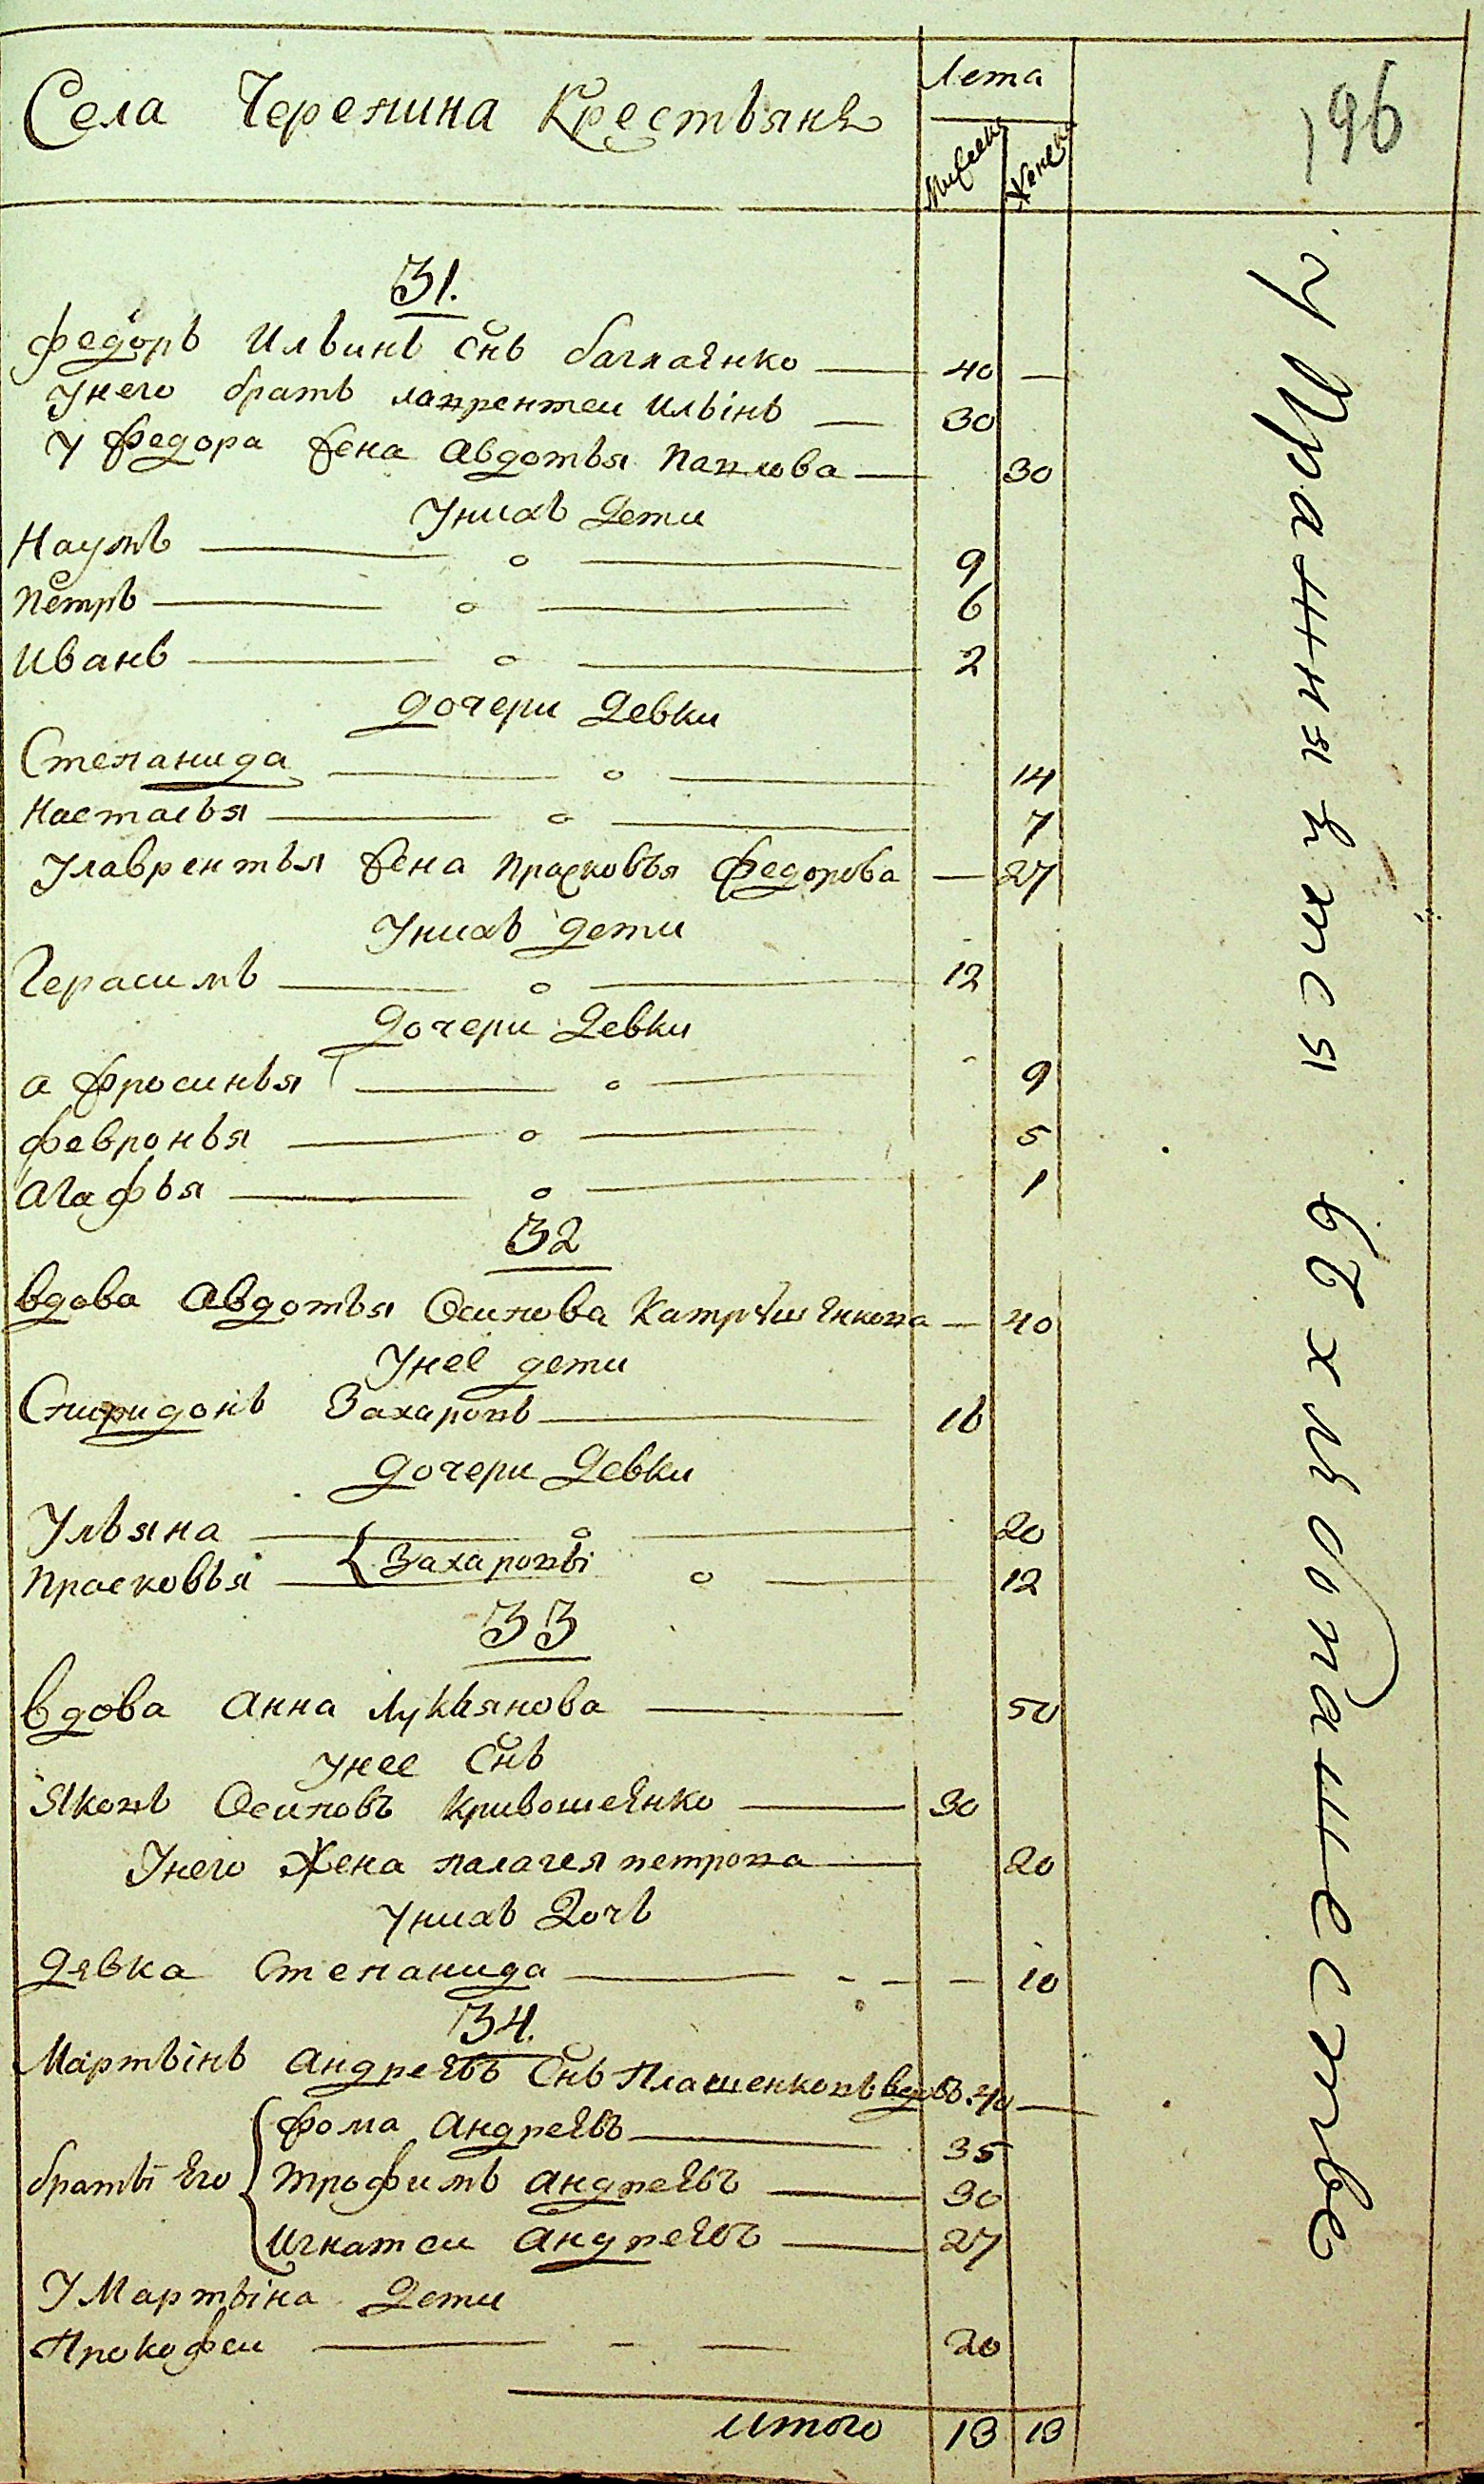 Села Черепина Крестьяне
Лета
Мужеска
Женска
196
31.
федоръ Ильинъ снъ баглаенко — 40 —
Унего братъ лаврентеи Ильінъ — 30
У федора жена Авдотья павлова — 30
Унихъ дети
Наумъ — о — 9
Петръ — о — 6
Иванъ — о — 2
дочери девки
Степанида — о — 14
Настасья — о — 7
Улаврентья жена Прасковья федорова — 27
Унихъ дети
Герасимъ — о — 12
дочери девки
афросинья — о — 9
февронья — о — 5
Агафья — о — 1
32
вдова Авдотья Осипова — 40
Унее дети
Спиридонъ Захаровъ — 16
дочери девки
Ульяна — о — 20
{ Захаровы
Прасковья — о — 12
33
вдова Анна Лукьянова — 50
Унее снъ
Яковъ Осиповъ кривошеенко — 30
Унего жена палагея петрова — 20
Унихъ дочь
девка Степанида — - - - 10
34.
Мартынъ Андреевъ снъ Плашенковъ вдовъ. 40 —
фома Андреевъ — 35
браты его { трофимъ андреевъ — 30
Игнатеи андреевъ — 27
У Мартына дети
Прокофеи — - — 20
Итого 13 13
упражняются в хлебопашестве